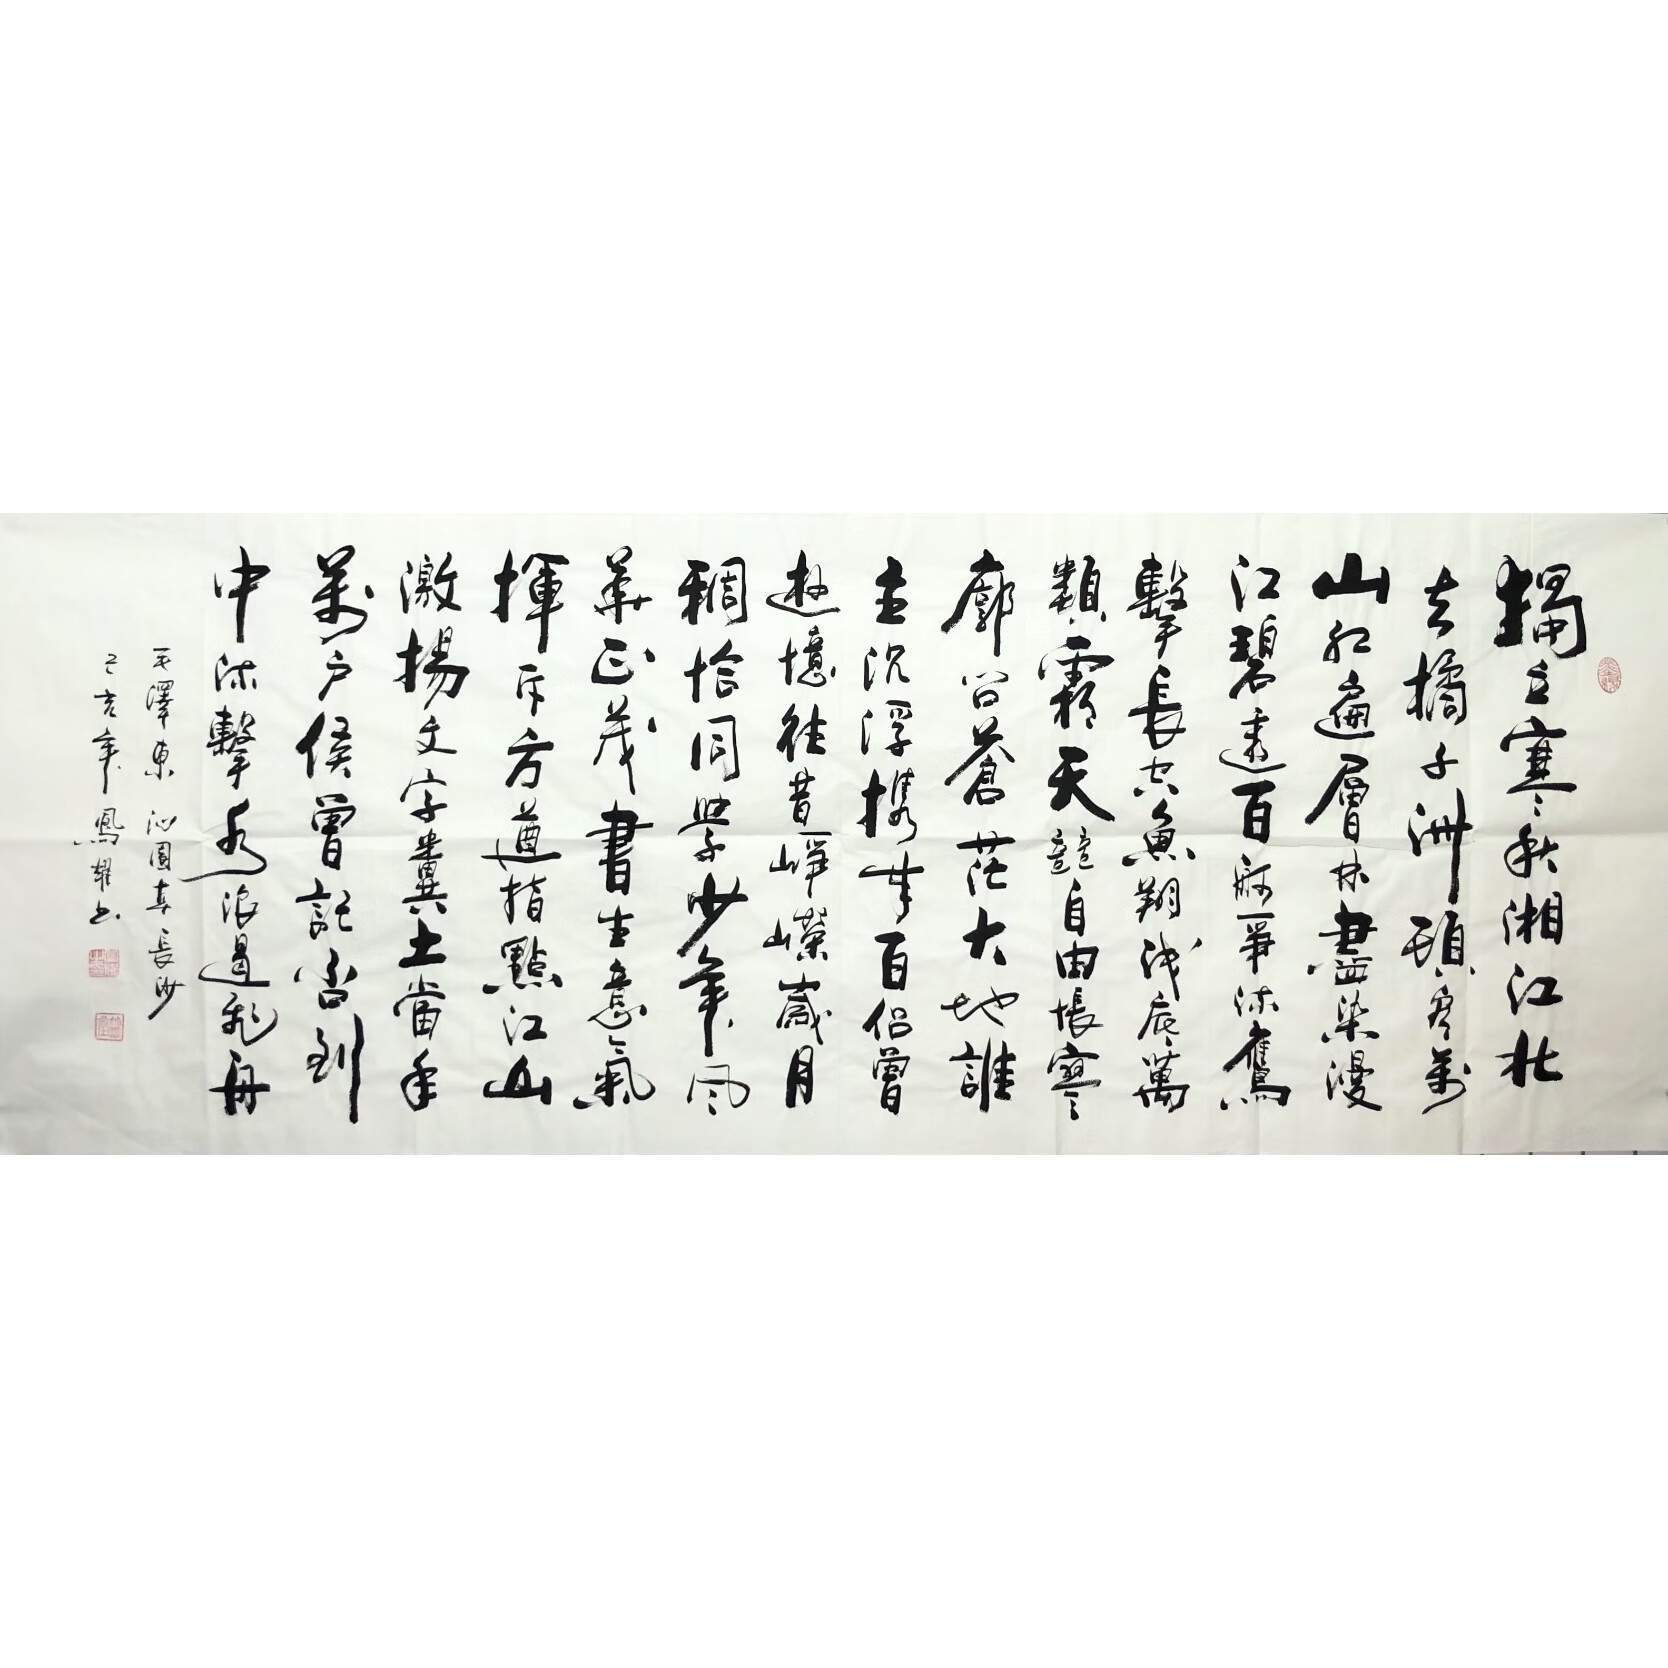 獨立寒秋湘江北
去橘子洲頭看萬
山紅遍層林盡染漫
江碧透百舸爭流鷹
擊長空魚翔淺底萬
類霜天競自由悵寥
廓問蒼茫大地誰
主沉浮携來百侶曾
遊憶往昔崢嶸歲月
稠恰同學少年風
華正茂書生意氣
揮斥方遒指點江山
激揚文字糞土當年
萬户侯曾記否到
中流擊水浪遏飛舟
毛澤東 沁園春 長沙
己亥年 鳳耀書